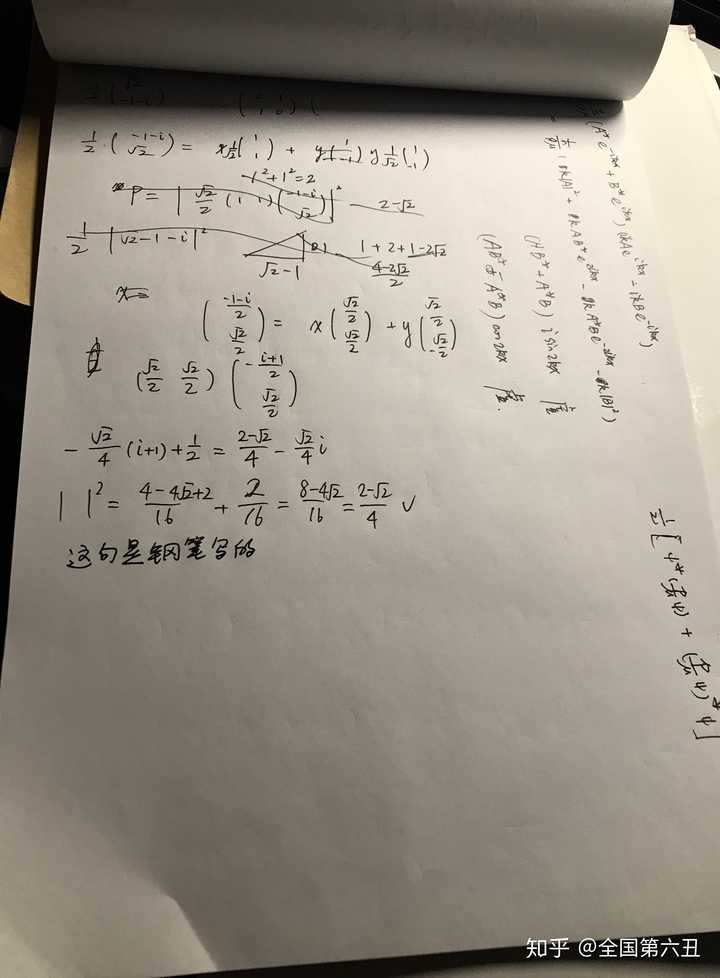 1/2 (-1-i / √2) = x 1/√2 (1 / 1) + y 1/√2 (1 / -1)
1² + 1² = 2
P = | √2/2 (1 1) (-1-i / √2) |²
2-√2
1/2 |√2-1-i|²
√2-1
1
1+2+1-2√2
4-2√2 / 2
x=
(-1-i/2 / √2/2) = x (√2/2 / √2/2) + y (√2/2 / -√2/2)
(√2/2 √2/2) (-i+1/2 / √2/2)
-√2/4 (i+1) + 1/2 = 2-√2/4 - √2/4 i
| |² = 4-4√2+2/16 + 2/16 = 8-4√2/16 = 2-√2/4 ✓
这句是钢笔写的
(AB* + A*B) i sin2kx
(AB* - A*B) cos2kx
1/2 [ψ*(p̂/μ ψ) + (p̂/μ ψ)* ψ]
知乎 @全国第六丑